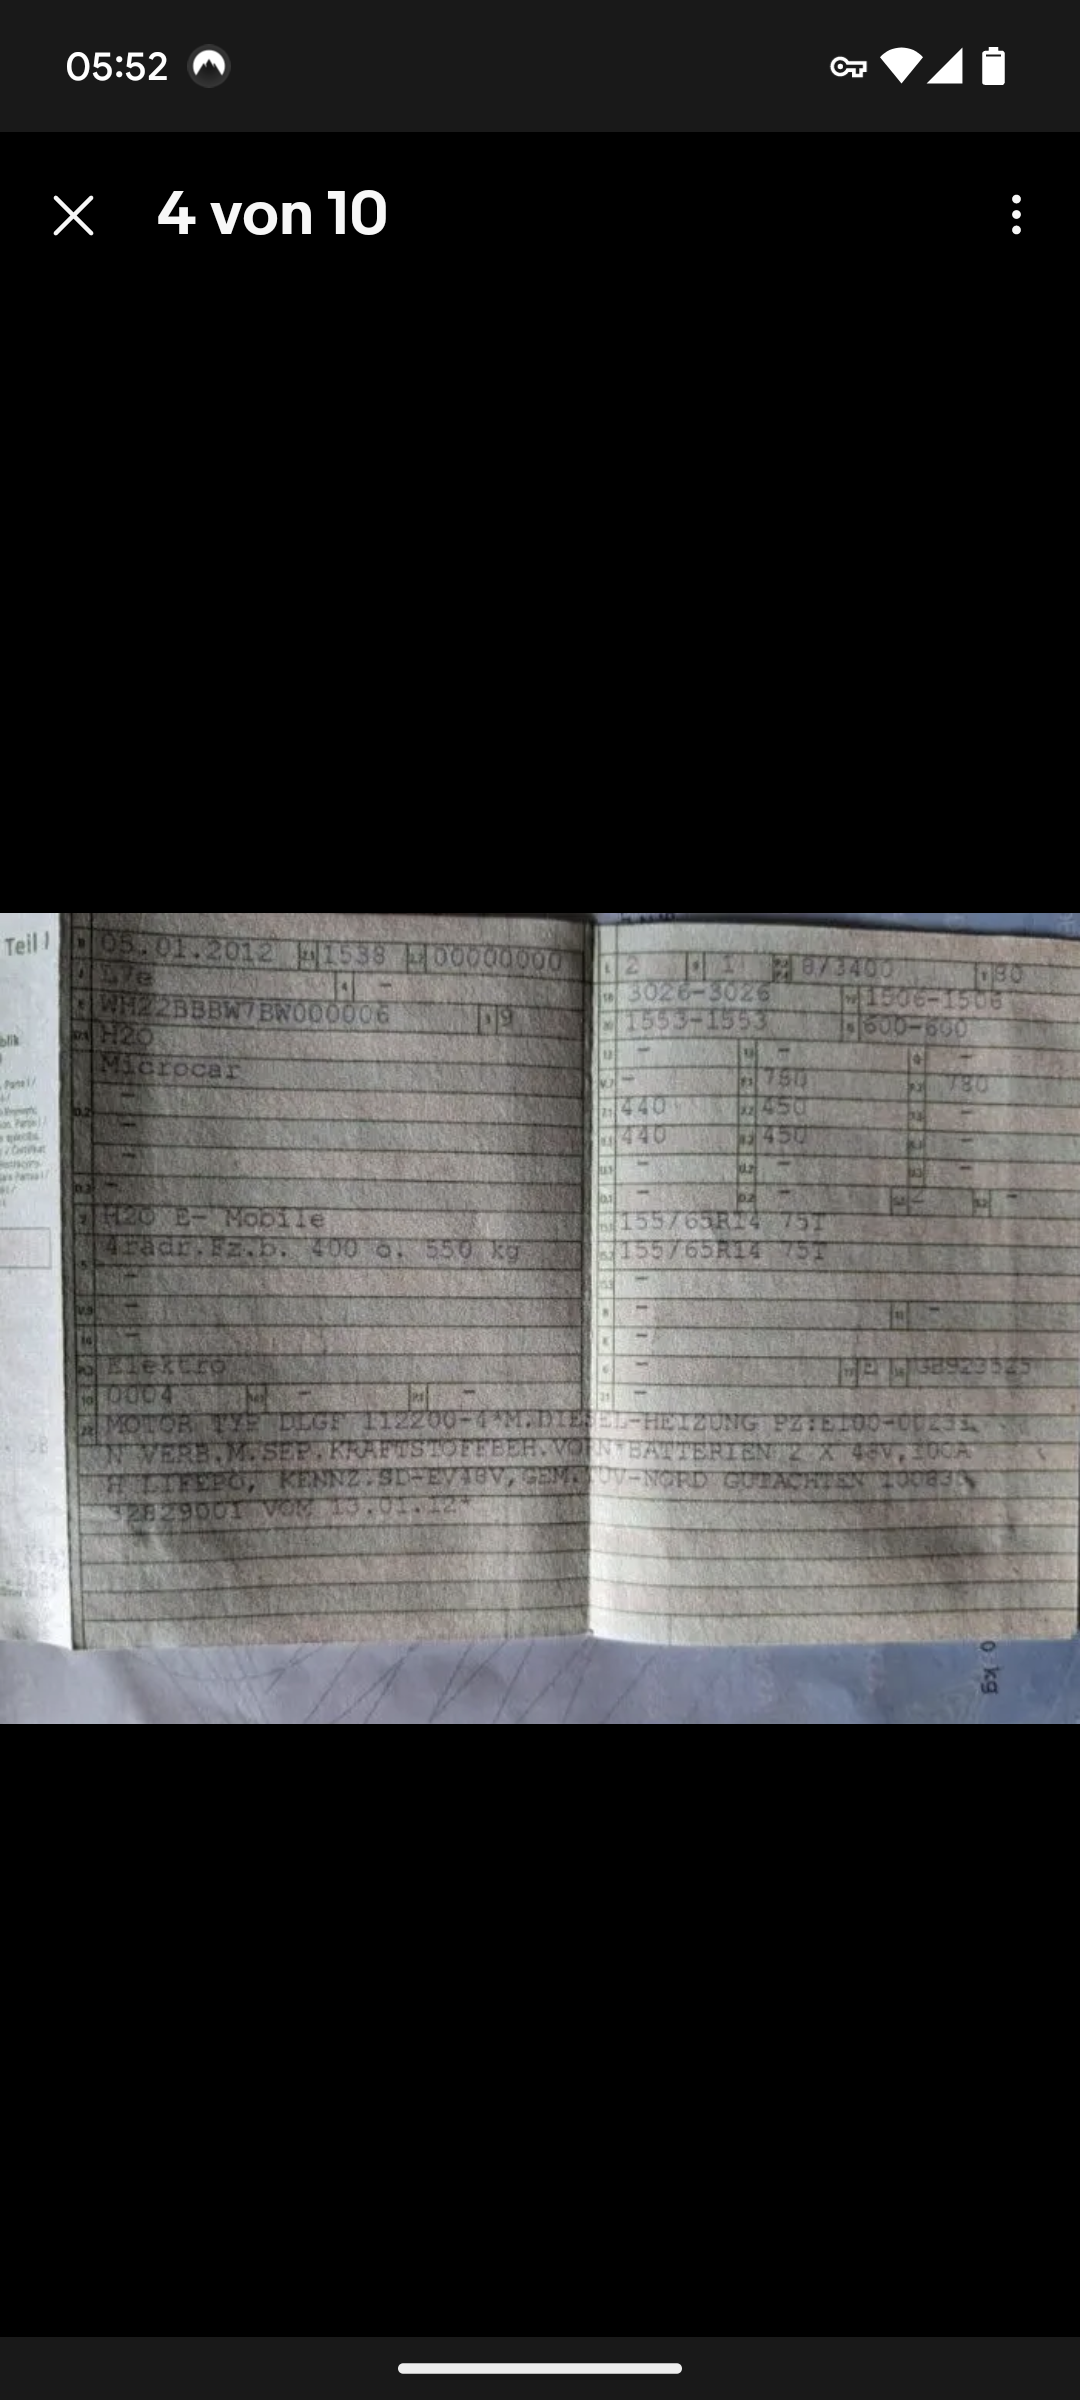 05:52
4 von 10
Teil I
05.01.2012 1538 00000000
L7e -
WH22BBBW7BW000006 9
H2O
Microcar
-
-
-
-
H2O E- Mobile
4rädr.Fz.b. 400 o. 550 kg
-
-
-
Elektro
0004 - -
2 1 8/3400 80
3026-3026 1506-1506
1553-1553 600-600
- - -
- 780 780
440 450 -
440 450 -
- - -
- - 2 -
155/65R14 75T
155/65R14 75T
-
- -
-
- E
-
MOTOR TYP DLGF 112200-4*M.DIESEL-HEIZUNG PZ:E100-
N VERB.M.SEP.KRAFTSTOFFBEH.VORN*BATTERIEN 2 X 48V,100A
H LIFEPO, KENNZ.SD-EV48V,GEM.TÜV-NORD GUTACHTEN
32829001 VOM 13.01.12*
kg